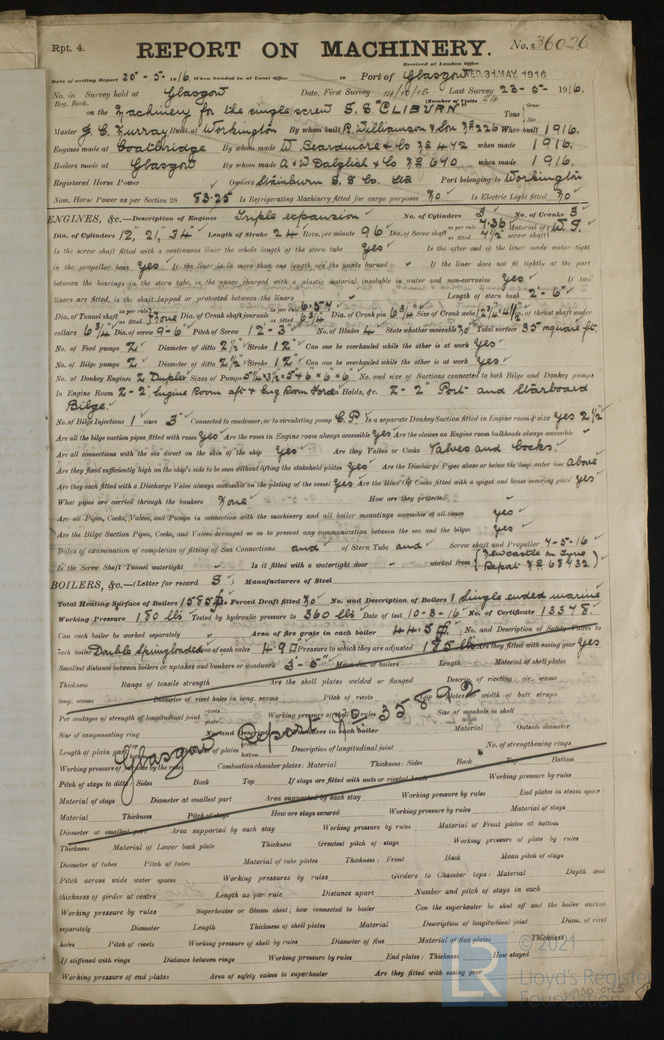 Rpt. 4.
REPORT ON MACHINERY.
No. 36026
Received at London Office
WED. 31 MAY, 1916
Date of writing Report 25-5-1916. When handed in at Local Office 19 Port of Glasgow
No. in Survey held at Glasgow Date, First Survey Last Survey 23-5-1916.
Reg. Book.
(Number of Visits
on the Machinery for the single screw S.S. CLIBURN Tons Gross Net
Master J. C. Murray Built at Workington By whom built R. Williamson & Son No 226 When built 1916.
Engines made at Coatbridge By whom made W. Beardmore & Co No 472 when made 1916.
Boilers made at Glasgow By whom made A & W Dalglish & Co No 640 when made 1916.
Registered Horse Power Owners Stainburn S.S. Co. Ltd Port belonging to Workington
Nom. Horse Power as per Section 28 83.25 Is Refrigerating Machinery fitted for cargo purposes No Is Electric Light fitted No
ENGINES, &c.—Description of Engines Triple expansion No. of Cylinders 3 No. of Cranks 3
Dia. of Cylinders 12", 21", 34" Length of Stroke 24 Revs. per minute 96 Dia. of Screw shaft as per rule as fitted 7½" Material of screw shaft
Is the screw shaft fitted with a continuous liner the whole length of the stern tube Yes Is the after end of the liner made water tight
in the propeller boss Yes If the liner is in more than one length are the joints burned If the liner does not fit tightly at the part
between the bearings in the stern tube, is the space charged with a plastic material insoluble in water and non-corrosive Yes If two
liners are fitted, is the shaft lapped or protected between the liners Length of stern bush 2'-6"
Dia. of Tunnel shaft as per rule as fitted None Dia. of Crank shaft journals as per rule 6.54 as fitted 6¾ Dia. of Crank pin 6¾ Size of Crank webs Dia. of thrust shaft under
collars 6¾ Dia. of screw 9-6" Pitch of Screw 12'-3" No. of Blades 4 State whether moveable No Total surface 35 square ft.
No. of Feed pumps 2 Diameter of ditto 2½" Stroke 12" Can one be overhauled while the other is at work Yes
No. of Bilge pumps 2 Diameter of ditto 2½" Stroke 12" Can one be overhauled while the other is at work Yes
No. of Donkey Engines 2 Duplex Sizes of Pumps No. and size of Suctions connected to both Bilge and Donkey pumps
In Engine Room 2-2", Engine Room aft & Eng Room Ford In Holds, &c. 2-2" Port and Starboard
Bilge.
No. of Bilge Injections 1 sizes 3" Connected to condenser, or to circulating pump C.P. Is a separate Donkey Suction fitted in Engine room & size Yes 2½"
Are all the bilge suction pipes fitted with roses Yes Are the roses in Engine room always accessible Yes Are the sluices on Engine room bulkheads always accessible
Are all connections with the sea direct on the skin of the ship Yes Are they Valves or Cocks Valves and Cocks.
Are they fixed sufficiently high on the ship's side to be seen without lifting the stokehold plates Yes Are the Discharge Pipes above or below the deep water line Above
Are they each fitted with a Discharge Valve always accessible on the plating of the vessel Yes Are the Blow Off Cocks fitted with a spigot and brass covering plate Yes
What pipes are carried through the bunkers None How are they protected
Are all Pipes, Cocks, Valves, and Pumps in connection with the machinery and all boiler mountings accessible at all times Yes
Are the Bilge Suction Pipes, Cocks, and Valves arranged so as to prevent any communication between the sea and the bilges Yes
Dates of examination of completion of fitting of Sea Connections and of Stern Tube and Screw shaft and Propeller 4-5-16
Is the Screw Shaft Tunnel watertight Is it fitted with a watertight door worked from (Newcastle on Tyne Report No 68432)
BOILERS, &c.—(Letter for record S) Manufacturers of Steel
Total Heating Surface of Boilers 1585 Is Forced Draft fitted No No. and Description of Boilers 1 Single ended marine
Working Pressure 180 lbs Tested by hydraulic pressure to 360 lbs Date of test 10-3-16 No. of Certificate 13378
Can each boiler be worked separately Area of fire grate in each boiler 44.5 No. and Description of Safety Valves to
each boiler Double Spring loaded Area of each valve 4.9 Pressure to which they are adjusted 185 lbs Are they fitted with easing gear Yes
Smallest distance between boilers or uptakes and bunkers or woodwork 3'-5" Mean dia. of boilers Length Material of shell plates
Thickness Range of tensile strength Are the shell plates welded or flanged Descrip. of riveting: cir. seams
long. seams Diameter of rivet holes in long. seams Pitch of rivets Lap of plates or width of butt straps
Per centages of strength of longitudinal joint rivets plate Working pressure of shell by rules Size of manhole in shell
Size of compensating ring No. and Description of Furnaces in each boiler Material Outside diameter
Glasgow Report No 35892
Length of plain part top bottom Thickness of plates crown bottom Description of longitudinal joint No. of strengthening rings
Working pressure of furnace by the rules Combustion chamber plates: Material Thickness: Sides Back Top Bottom
Pitch of stays to ditto: Sides Back Top If stays are fitted with nuts or riveted heads Working pressure by rules
Material of stays Diameter at smallest part Area supported by each stay Working pressure by rules End plates in steam space:
Material Thickness Pitch of stays How are stays secured Working pressure by rules Material of stays
Diameter at smallest part Area supported by each stay Working pressure by rules Material of Front plates at bottom
Thickness Material of Lower back plate Thickness Greatest pitch of stays Working pressure of plate by rules
Diameter of tubes Pitch of tubes Material of tube plates Thickness: Front Back Mean pitch of stays
Pitch across wide water spaces Working pressures by rules Girders to Chamber tops: Material Depth and
thickness of girder at centre Length as per rule Distance apart Number and pitch of stays in each
Working pressure by rules Superheater or Steam chest; how connected to boiler Can the superheater be shut off and the boiler worked
separately Diameter Length Thickness of shell plates Material Description of longitudinal joint Diam. of rivet
holes Pitch of rivets Working pressure of shell by rules Diameter of flue Material of flue plates Thickness
If stiffened with rings Distance between rings Working pressure by rules End plates: Thickness How stayed
Working pressure of end plates Area of safety valves to superheater Are they fitted with easing gear
© 2021
Lloyd's Register
Foundation
LR